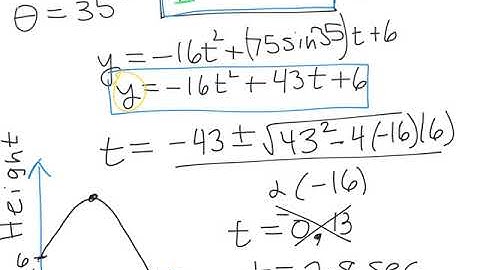 θ = 35
y = -16t² + (75 sin 35)t + 6
y = -16t² + 43t + 6
t = -43 ± √43² - 4(-16)(6)
2(-16)
t = -0.13
Height
6